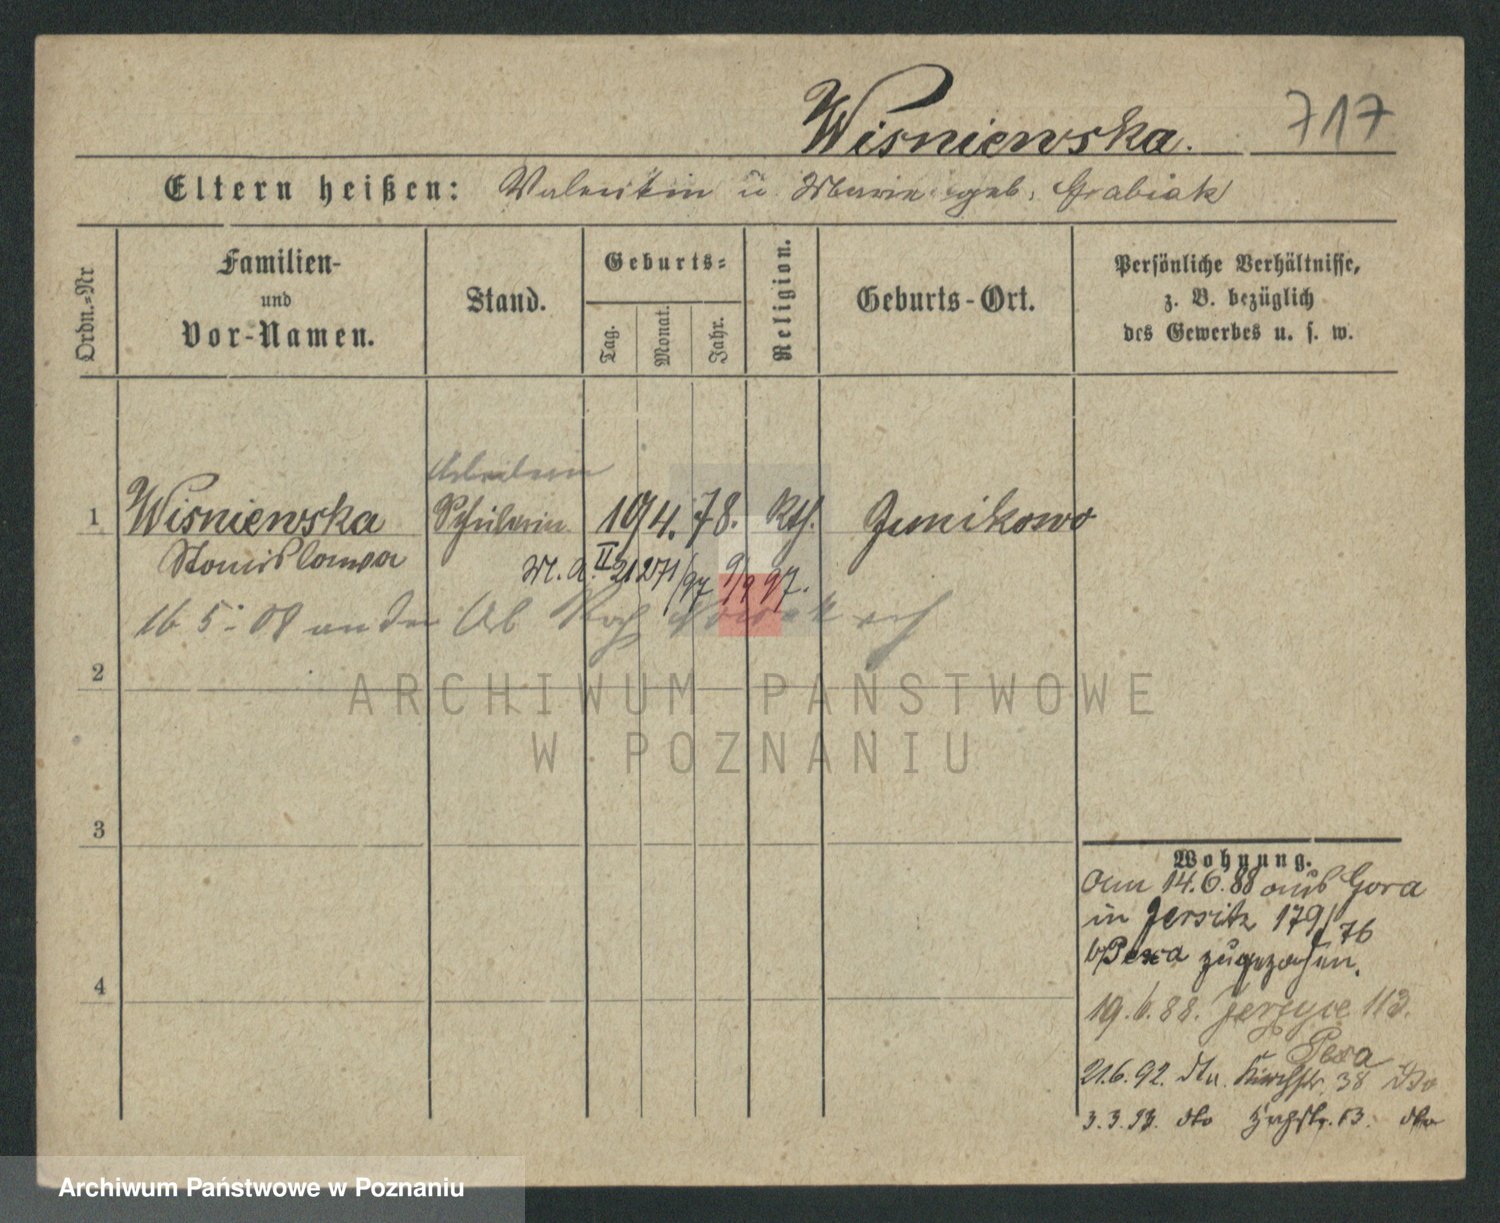 Wisniewska. 717
Eltern heißen: Valentin u. Marie geb. Grabiak
Ordn.=Nr
Familien-
und
Vor-Namen.
Stand.
Geburts=
Tag.
Monat.
Jahr.
Religion.
Geburts-Ort.
Persönliche Verhältnisse,
z. B. bezüglich
des Gewerbes u. s. w.
Arbeiterin
1 Wisniewska Schülerin 19 4. 78. Kth. Junikowo
Stanislawa
M. A. II 21271/97 9/9 97.
16 5. 08
2
ARCHIWUM PAŃSTWOWE
W POZNANIU
3
Wohnung.
Am 14.6.88 aus Gora
in Jersitz 179/76
b/Pexa zugezogen.
4
19.6.88. Jerzyce 113.
Pexa
21.6.92. dto. Kirchstr. 38 dto
3.3.93. dto 13. dto
Archiwum Państwowe w Poznaniu